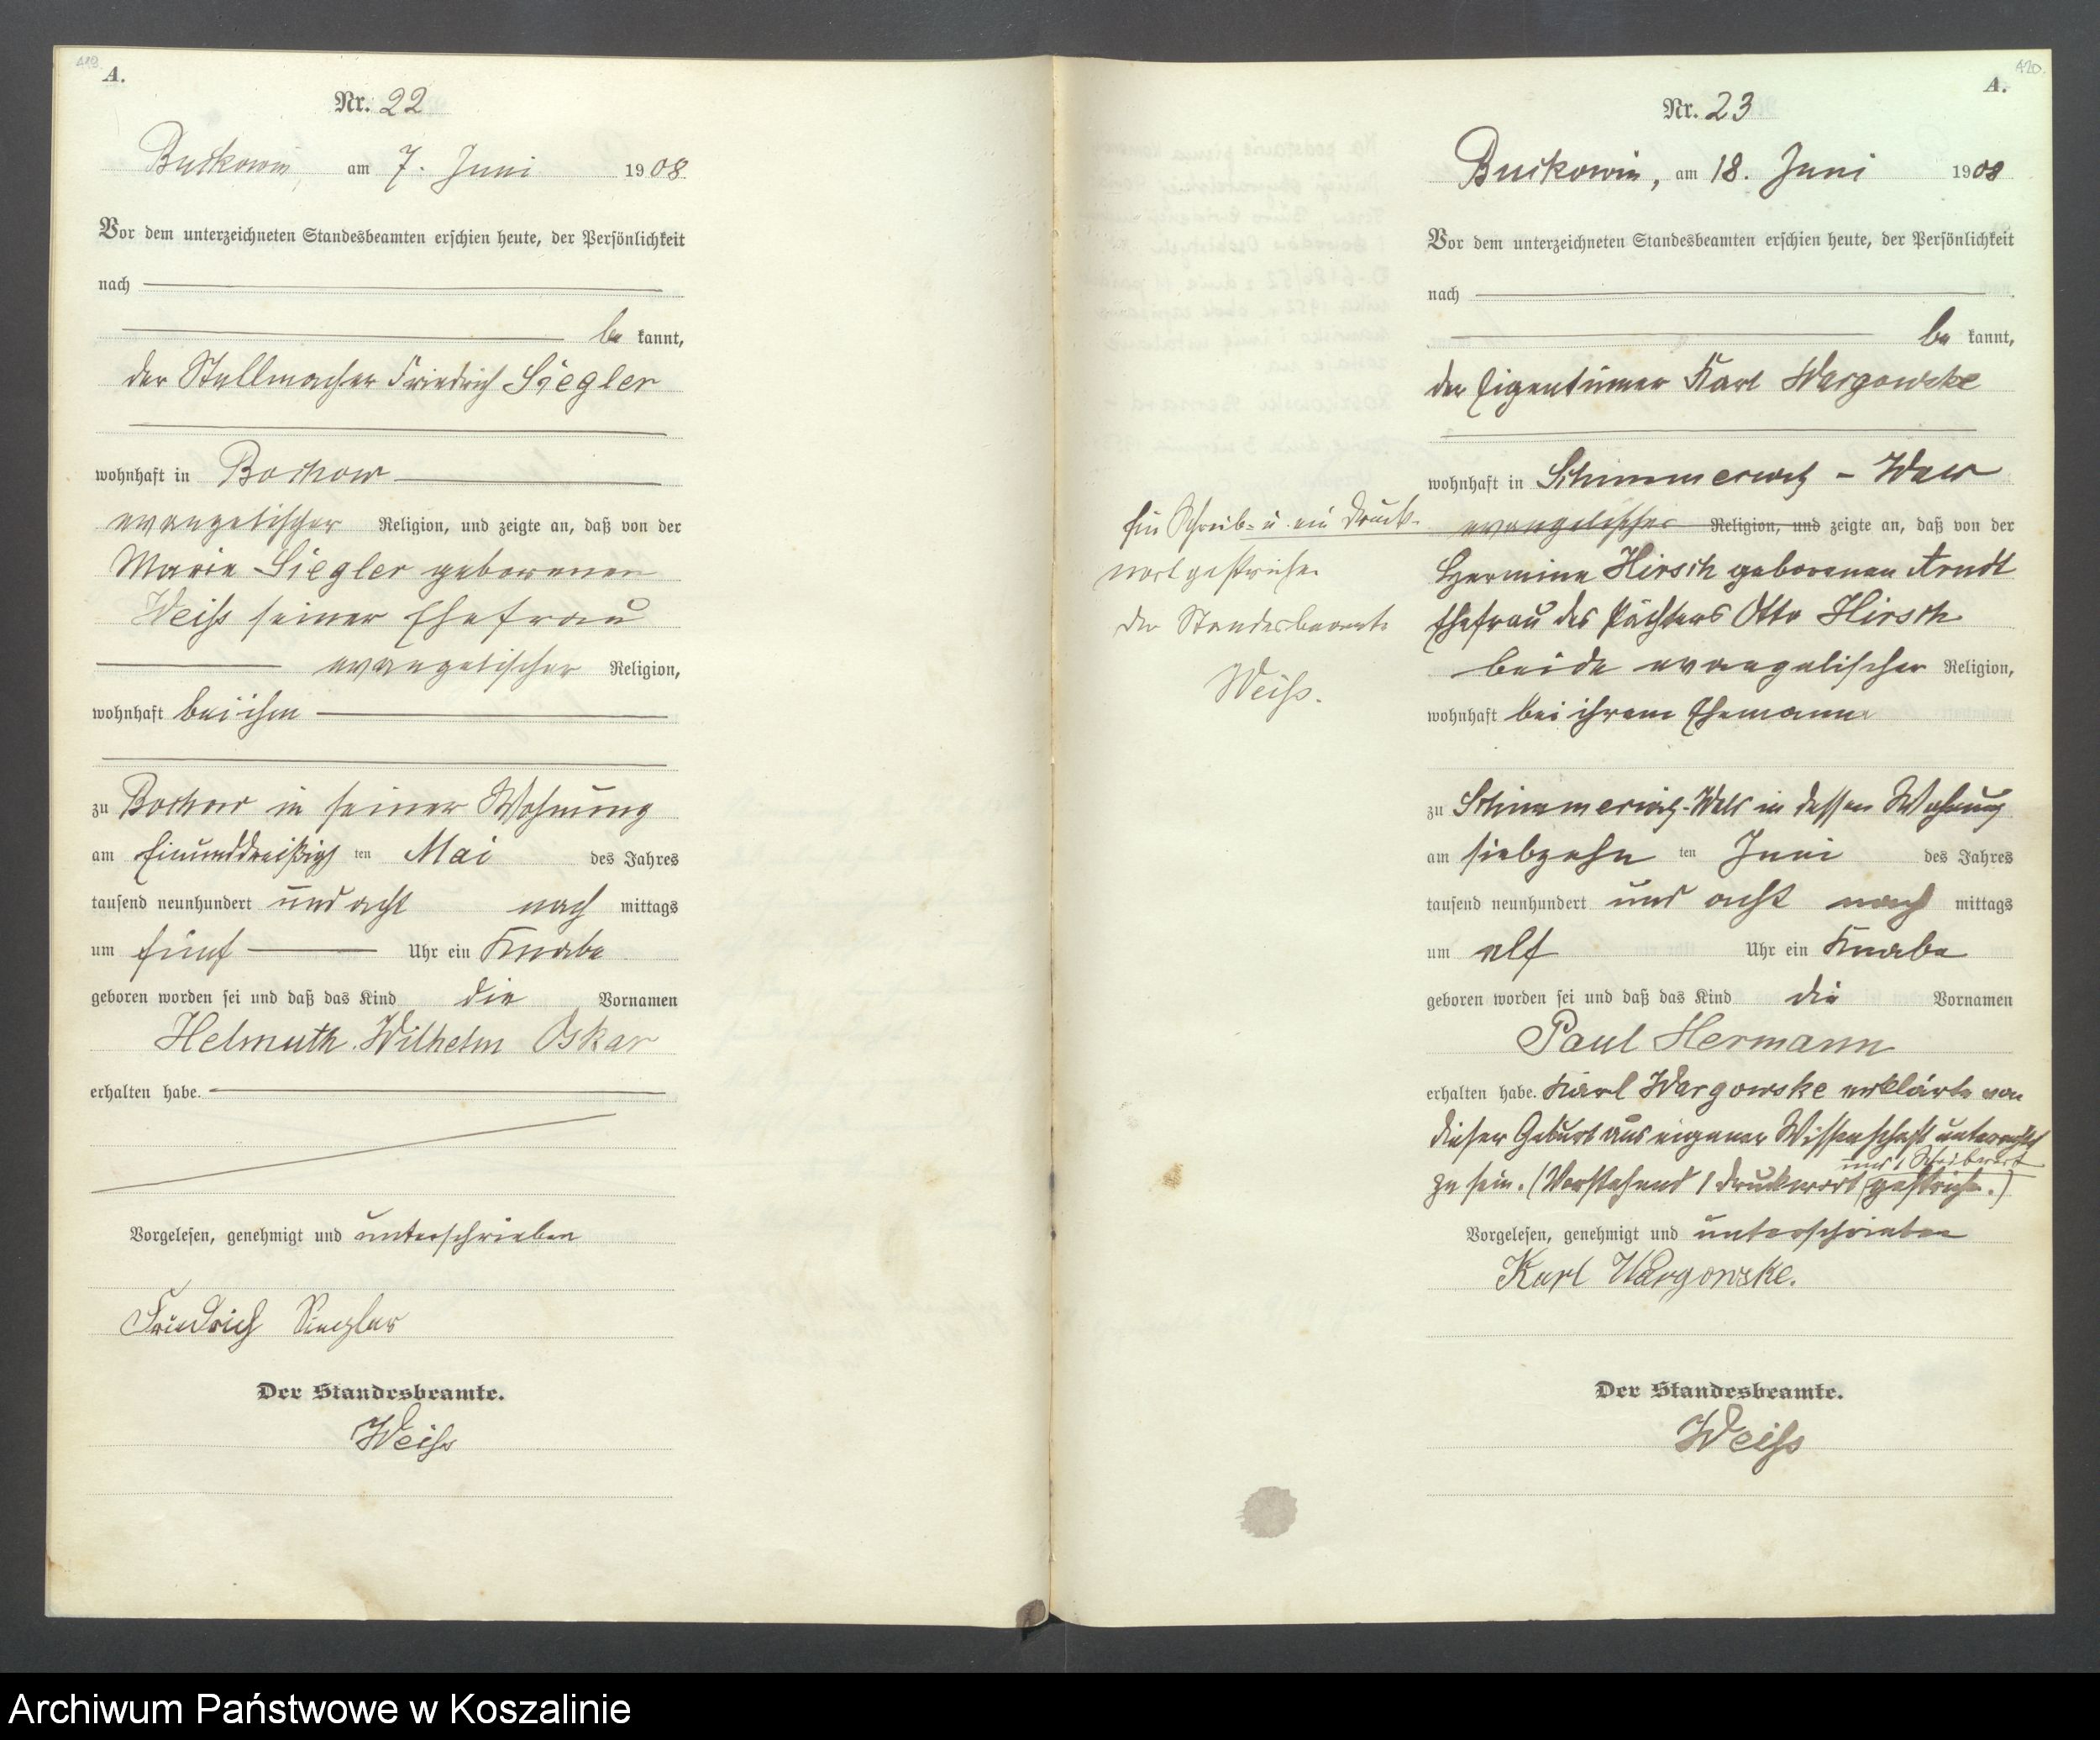 419.
A.
Nr. 22
Buckowin, am 7. Juni 1908
Vor dem unterzeichneten Standesbeamten erschien heute, der Persönlichkeit
nach
be kannt,
der Stellmacher Friedrich Siegler
wohnhaft in Bochow
evangelischer Religion, und zeigte an, daß von der
Marie Siegler geborenen
Weiß seiner Ehefrau
evangelischer Religion,
wohnhaft bei ihm
zu Bochow in seiner Wohnung
am Einunddreißig ten Mai des Jahres
tausend neunhundert und acht nach mittags
um fünf Uhr ein Knabe
geboren worden sei und daß das Kind die Vornamen
Helmuth Wilhelm Oskar
erhalten habe.
Vorgelesen, genehmigt und unterschrieben
Friedrich Siegler
Der Standesbeamte.
Weiß
420.
A.
Nr. 23
Buckowin, am 18. Juni 1908
Vor dem unterzeichneten Standesbeamten erschien heute, der Persönlichkeit
nach
be kannt,
der Eigentümer Karl Wargowske
wohnhaft in Schimmerwitz -
evangelischer Religion, und zeigte an, daß von der
Hermine Hirsch geborenen Arndt
Ehefrau des Pächters Otto Hirsch
beide evangelischer Religion,
wohnhaft bei ihrem Ehemanne
zu Schimmerwitz- in dessen Wohnung
am siebzehn ten Juni des Jahres
tausend neunhundert und acht nach mittags
um elf Uhr ein Knabe
geboren worden sei und daß das Kind die Vornamen
Paul Hermann
erhalten habe. Karl Wargowske erklärte von
dieser Geburt aus eigener Wissenschaft unterrichtet
und 1 Schreibwort
zu sein. (Vorstehend 1 Druckwort gestrichen.)
Vorgelesen, genehmigt und unterschrieben
Karl Wargowske.
Der Standesbeamte.
Weiß
Ein Schreib- u. ein Druck-
wort gestrichen
Der Standesbeamte
Weiß.
Archiwum Państwowe w Koszalinie